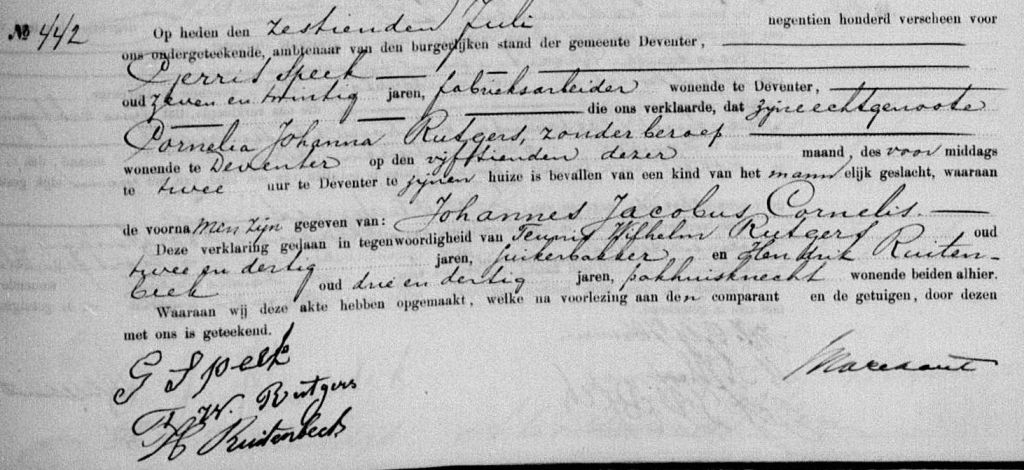 № 442 Op heden den zestienden Juli negentien honderd verscheen voor
ons ondergeteekende, ambtenaar van den burgerlijken stand der gemeente Deventer,
Gerrit Speek
oud zeven en twintig jaren, fabrieksarbeider wonende te Deventer,
die ons verklaarde, dat zijne echtgenoote
Cornelia Johanna Rutgers, zonder beroep
wonende te Deventer op den vijftienden dezer maand, des voor middags
te twee uur te Deventer te zijnen huize is bevallen van een kind van het mannelijk geslacht, waaraan
de voornamen zijn gegeven van: Johannes Jacobus Cornelis.
Deze verklaring gedaan in tegenwoordigheid van Teunis Wilhelm Rutgers oud
twee en dertig jaren, suikerbakker en Hendrik Ruiten-
beek oud drie en dertig jaren, pakhuisknecht wonende beiden alhier.
Waaraan wij deze akte hebben opgemaakt, welke na voorlezing aan den comparant en de getuigen, door dezen
met ons is geteekend.
G Speek
T. W. Rutgers
H Ruitenbeek
Marchant